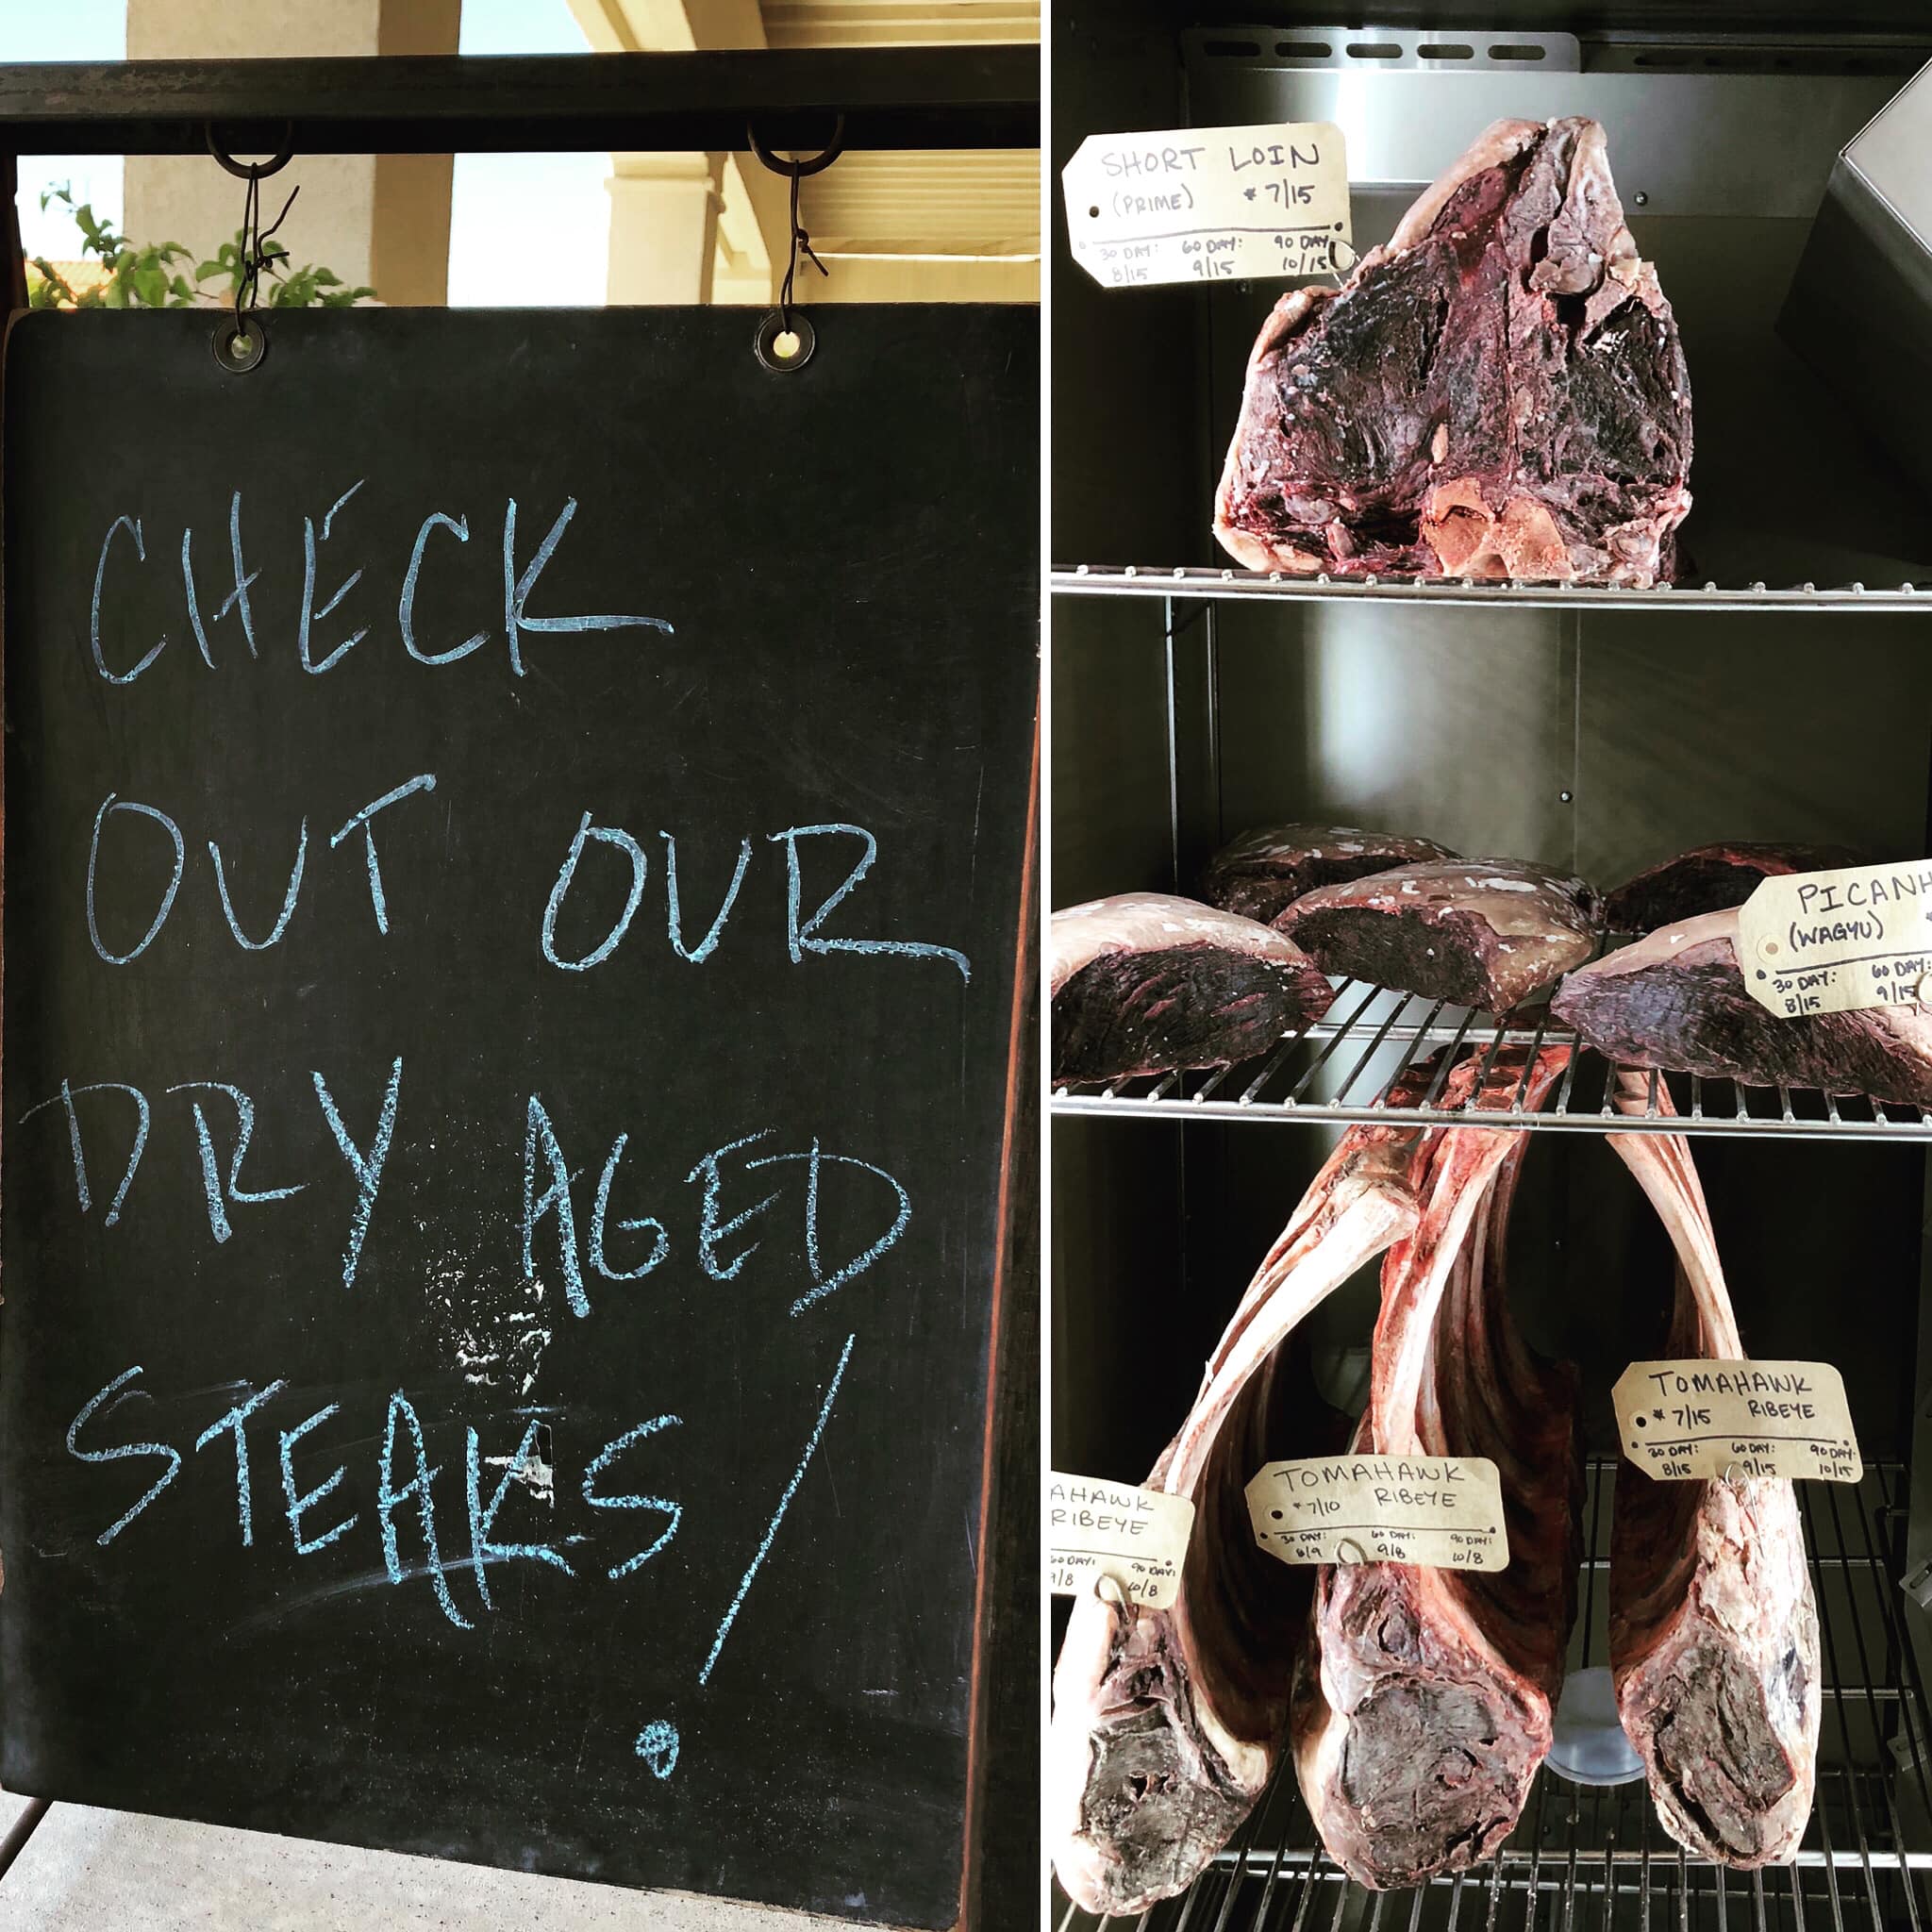 CHECK
OUT OUR
DRY AGED
STEAKS!
SHORT LOIN
(PRIME) * 7/15
30 DAY: 60 DAY: 90 DAY:
8/15 9/15 10/15
PICANH
(WAGYU)
30 DAY: 60 DAY:
8/15 9/15
TOMAHAWK
* 7/15 RIBEYE
30 DAY: 60 DAY: 90 DAY:
8/15 9/15 10/15
TOMAHAWK
* 7/10 RIBEYE
30 DAY: 60 DAY: 90 DAY:
8/9 9/8 10/8
AHAWK
RIBEYE
60 DAY: 90 DAY:
9/8 10/8